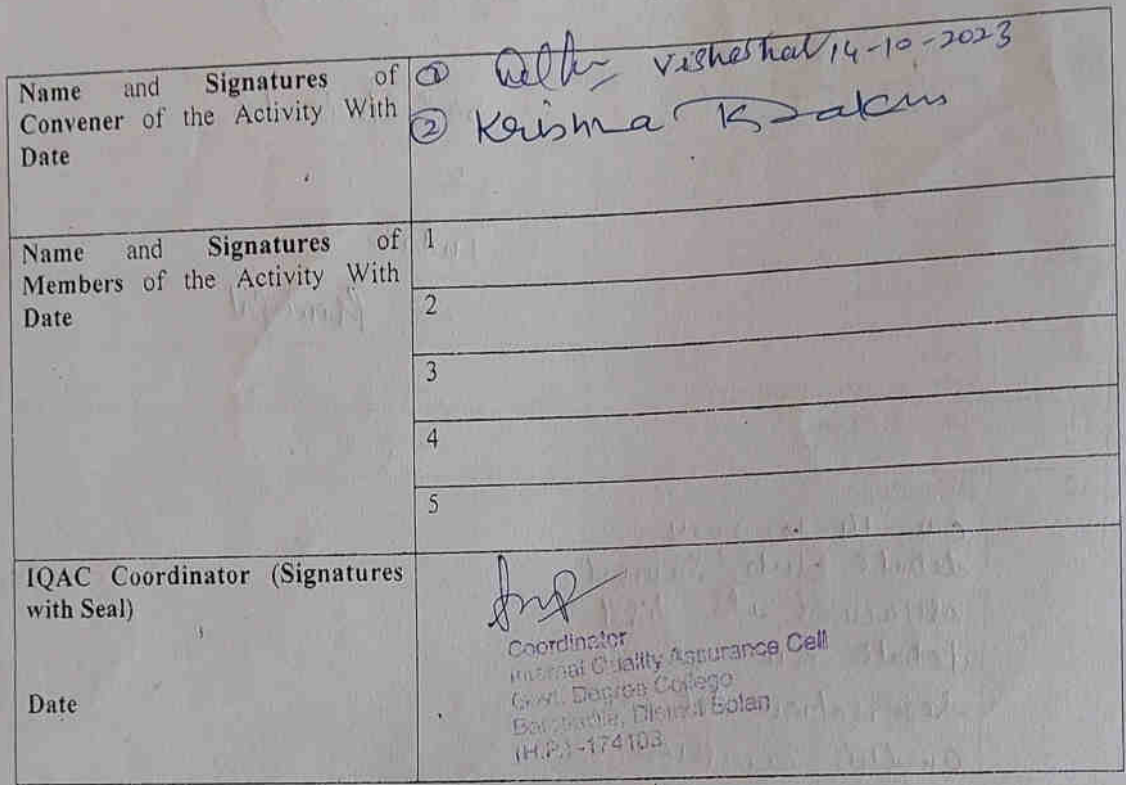 Name and Signatures of
Convener of the Activity With
Date
① Visheshal 14-10-2023
② Krishna
Name and Signatures of
Members of the Activity With
Date
1
2
3
4
5
IQAC Coordinator (Signatures
with Seal)
Date
Coordinator
Internal Quality Assurance Cell
Govt. Degree College
District Solan
(H.P.)-174103